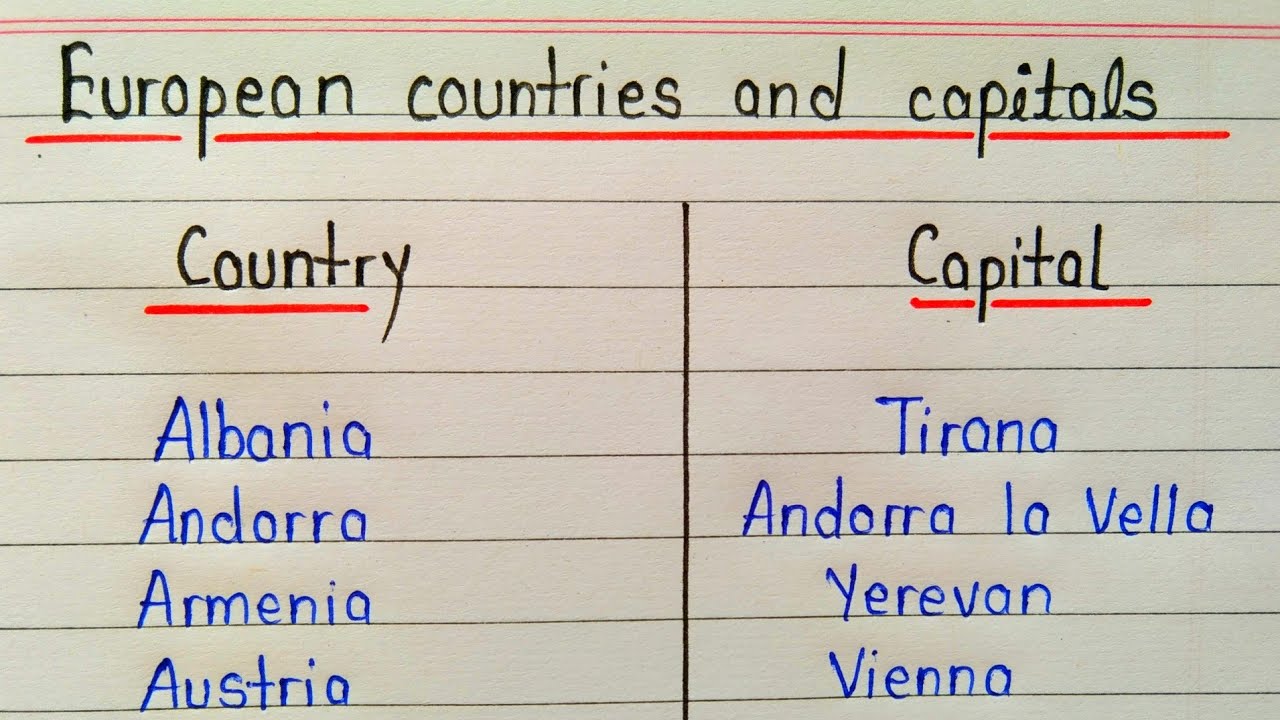 European countries and capitals
Country Capital
Albania Tirana
Andorra Andorra la Vella
Armenia Yerevan
Austria Vienna